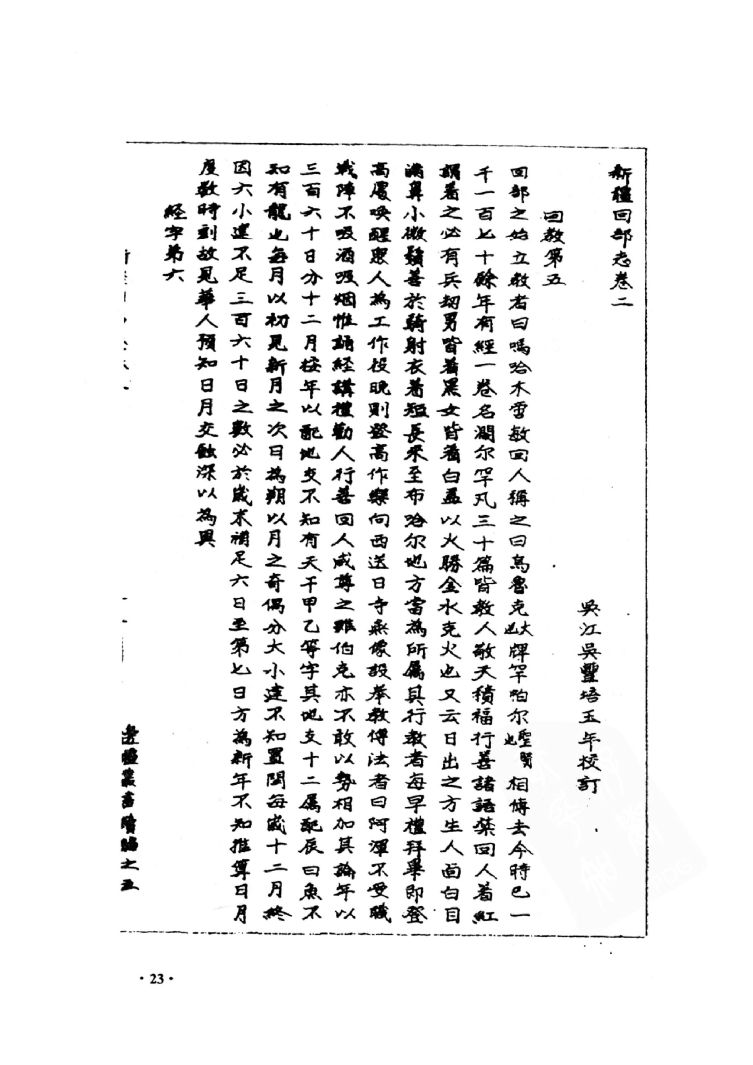 新疆回部志卷二
吳江吳豐培五年校訂
回教第五
回部之始立教者曰嗎哈木雷敏回人稱之曰烏魯克大也牌罕帕尔聖賢也相傳去今時已一
千一百七十餘年有經一卷名濶尔罕凡三十篇皆教人敬天積福行善諸語禁回人着紅
謂着之必有兵刼男皆着黑女皆着白蓋以火勝金水克火也又云日出之方生人面白目
滿鼻小微鬚善於騎射衣着短長來至布哈尔地方當為所屬其行教者每早禮拜畢即登
高處喚醒眾人為工作投晚則登高作樂向西送日寺無像設奉教傳法者曰阿渾不受職
戰陣不吸酒吸烟惟誦經講禮勸人行善回人咸尊之雖伯克亦不敢以勢相加其論年以
三百六十日分十二月按年以配地支不知有天干甲乙等字其地支十二屬配辰曰魚不
知有龍也每月以初見新月之次日為朔以月之奇偶分大小建不知置閏每歲十二月終
因六小建不足三百六十日之數必於歲末補足六日至第七日方為新年不知推算日月
度數時刻故見華人預知日月交蝕深以為異
經字第六
邊疆叢書續編之五
·23·